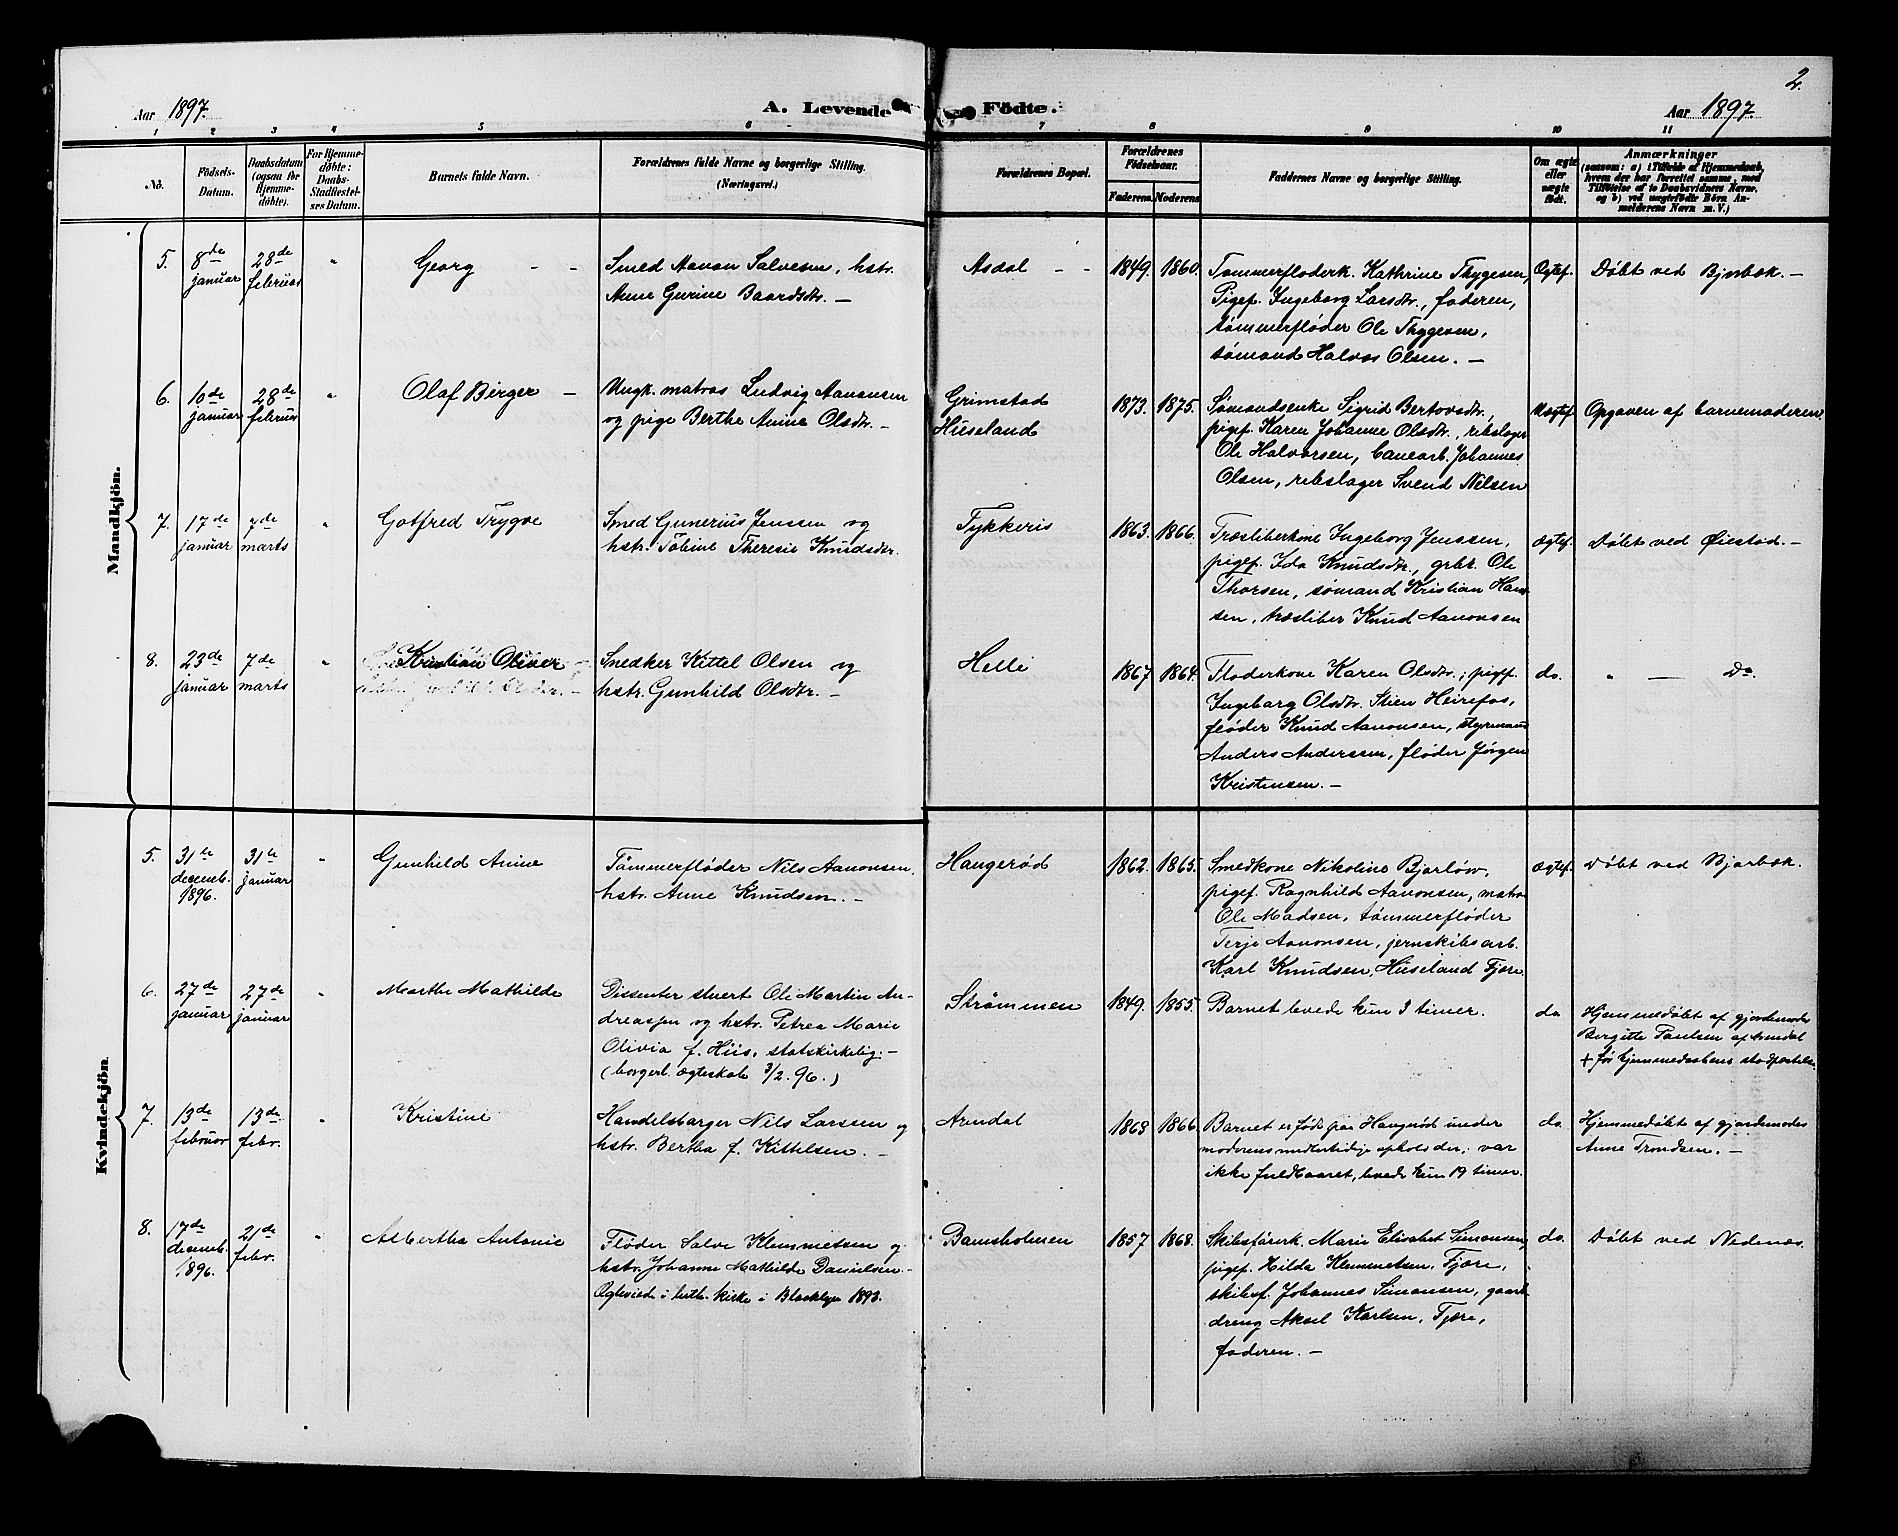 2.
Aar 1897.
A. Levende
Födte.
Aar 1897.
1 2 3 4 5 6 7 8 9 10 11
No.
Födsels-
Datum.
Daabsdatum
(ogsaa for
Hjemme-
døbte).
For Hjemme-
døbte:
Daabs-
Stadfæstel-
ses Datum.
Barnets fulde Navn.
Forældrenes fulde Navne og borgerlige Stilling.
(Næringsvei.)
Forældrenes Bopæl.
Forældrenes
Födselsaar.
Faderens.
Moderens.
Faddernes Navne og borgerlige Stilling.
Om ægte
eller
uægte
født.
Anmærkninger
(saasom: a) i Tilfælde af Hjemmedaab,
hvem der har forrettet samme, med
Tilføielse af to Daabsvidners Navne,
og b) ved uægtefødte Børn An-
melderens Navn m. V.)
Mandkjön.
5.
8de
januar
28de
februar
"
Georg - -
Smed Aanon Salvesen, hstr.
Anne Gurine Baardsdtr. -
Asdal - -
1849. 1860.
Tømmerfløderk. Kathrine Thygesen,
Pigef. Ingeborg Larsdtr., faderen,
tømmerfløder Ole Thygesen,
sømand Halvor Olsen. -
Ægtef.
Døbt ved Bjorbæk. -
6.
10de
januar
28de
februar
"
Olaf Birger -
Ungk. matros Ludvig Aanonsen
og pige Berthe Anine Olsdtr. -
Grimstad
Hiseland
1873. 1875.
Sømandsenke Sigrid
pigef. Karen Johanne Olsdtr., rebslager
Ole Halvorsen, banearb. Johannes
Olsen, rebslager Svend Nilsen
Uægtef.
Opgaven af barnemoderen
7.
17de
januar
7de
marts
"
Gotfred Trygve
Smed Gunerius Jenssen og
hstr. Tobine Theresie Knudsdtr.
Tykkeris
1863. 1866.
Træsliberkone Ingeborg Jenssen,
pigef. Ida Knudsdtr., grbr. Ole
Thorsen, sømand Kristian Han-
sen, træsliber Knud Aanonsen
Ægtef.
Døbt ved Øiestad. -
8.
23de
januar
7de
marts
"
Kristian Oliver -
Snedker Kittel Olsen og
hstr. Gunhild Olsdtr. -
Helle
1867 1864.
Fløderkone Karen Olsdtr.; pigef.
Ingeborg Olsdtr. Stien Heirefos,
fløder Knud Aanonsen, styrmand
Anders Anderssen, fløder Jørgen
Kristensen. -
do.
" — Do.
Kvindekjön.
5.
31te
decemb.
1896.
31te
januar
"
Gunhild Anine
Tømmerfløder Nils Aanonsen,
hstr. Anne Knudsen. -
Haugerød
1862. 1865.
Smedkone Nikoline Bjorløw,
pigef. Ragnhild Aanonsen, matros
Ole Madsen, tømmerfløder
Terje Aanonsen, jernskibsarb.
Karl Knudsen, Hiseland Fjære
Ægtef.
Døbt ved Bjorbæk.
6.
27de
januar
27de
januar
"
Marthe Mathilde
Dissenter stuert Ole Martin An-
dreassen og hstr. Petrea Marie
Olivia f. Hiis, statskirkelig. -
(borgerl. ægteskab 3/2. 96.)
Strømmen
1849. 1855.
Barnet levede kun 3 timer.
do
Hjemmedøbt af gjordemoder
Bergitte Paulsen af Arendal
+ før hjemmedaabens stadfæstelse
7.
13de
februar
13de
febr.
"
Kristine
Handelsborger Nils Larsen og
hstr. Bertha f. Kittelsen. -
Arendal
1868 1866.
Barnet er født paa Haugerød under
moderens midlertidige ophold der; var
ikke fuldbaaret, levede kun 19 timer.
do.
Hjemmedøbt af gjordemoder
Anne Trondsen. -
8.
17de
decemb.
1896.
21de
febr.
"
Albertha Antonie
Fløder Salve Klemmetsen og
hstr. Johanne Mathilde Danielsen. -
Ægteviede i luth. kirke i 1893.
Bamsholmen
1857 1868.
Skibsførerk. Marie Elisabet Simonsen,
pigef. Hilda Klemmetsen, Fjære,
skibsf. Johannes Simonsen, gaard-
dreng Aksel Karlsen, Fjære,
faderen. -
do.
Døbt ved Nedenæs.